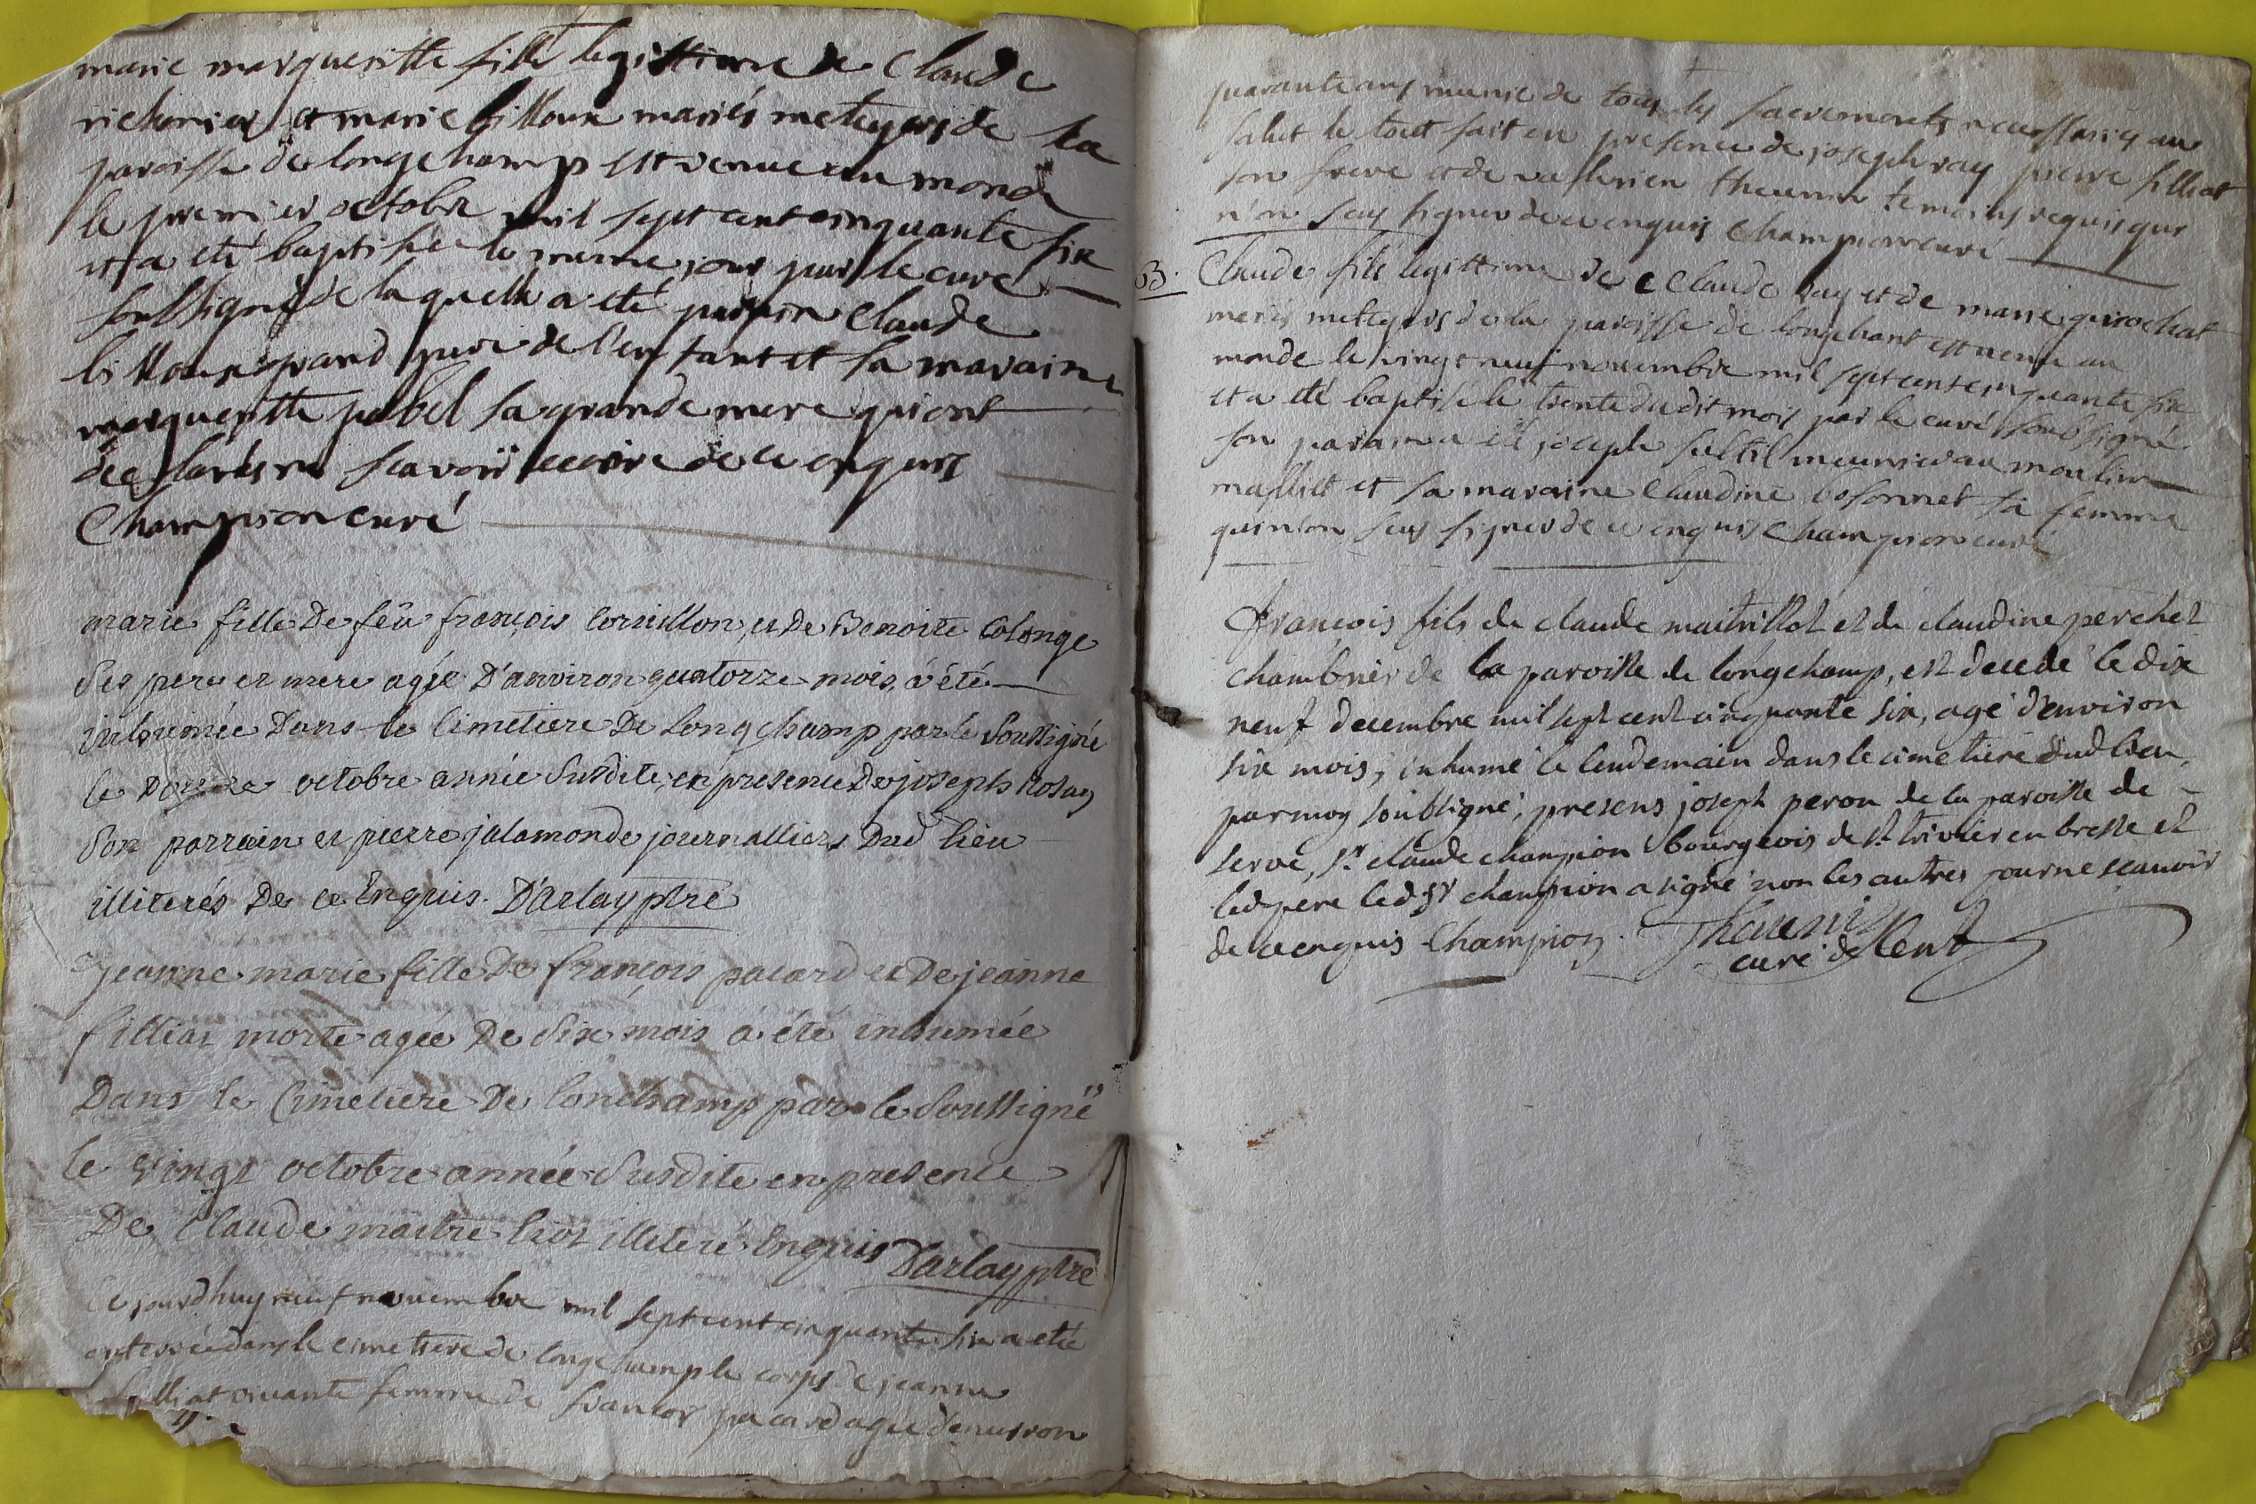 marie margueritte fille legittime de Claude
richonier et marie billoux mariés meteyers de la
paroisse de longchamp est venue au monde
le premier octobre mil sept cent cinquante six
et a eté baptisée le meme jour par le curé
soussigné de laquelle a eté parrin Claude
billoux grand pere de l'enfant et sa maraine
margueritte pobel sa grande mere qui ont
declarés ne scavoir ecrire de ce enquis
Champion curé
marie fille De feü françois Cornillon, et De Benoite Colonge
Ses pere et mere agée D'anviron quatorze mois, a été
inhumée Dans le Cimetiere De Longchamp par le Soussigné
le octobre année Susdite, en presence De joseph Rosay
Son parrain et pierre jalamonde journalliers Dud lieu
illiterés De ce Enquis. D'arlay ptre
jeanne marie fille De françois pacard et De jeanne
filliat morte agée De Six mois a été inhumée
Dans le Cimetiere De Lonchamp par le Soussigné
le vingt octobre année Susdite en presence
De Claude maitre trot illeteré Enquis D'arlay ptre
Ce jourdhuy neuf novembre mil sept cent cinquante six a eté
enterrée dans le cimetiere de longchamp le corps de jeanne
filliat vivante femme de francois pacard agée denviron
quarante ans munie de tous les sacrements necessaires au
salut le tout fait en presence de joseph ray pierre filliat
son frere et de vallerien theuenin temoins requis qui
n'on scu signer de ce enquis Champion curé
B. Claude fils legittime de Claude ray et de marie guirochat
mariés metteyers de la paroisse de longchant est venu au
monde le vingt neuf novembre mil sept cent cinquante six
et a eté baptisé le trente dudit mois par le curé soussigné
son parain a eté joseph subtil meunier au moulin
massict et sa maraine Claudine bosonnet sa femme
qui n'on scu signer de ce enquis Champion curé
françois fils de claude maitrillot et de claudine perchet
chambrier de la paroisse de longchamp, est decede le dix
neuf decembre mil sept cent cinquante six, agé d'environ
six mois, inhumé le lendemain dans le cimetiere dud lieu,
par moy soubsigné, presens joseph peron de la paroisse de
servé, sr. claude champion bourgeois de st. trivier en bresse et
led pere led sr champion a signé non les autres pour ne scauoir
de ce enquis Champion. Thevenin
curé de lent